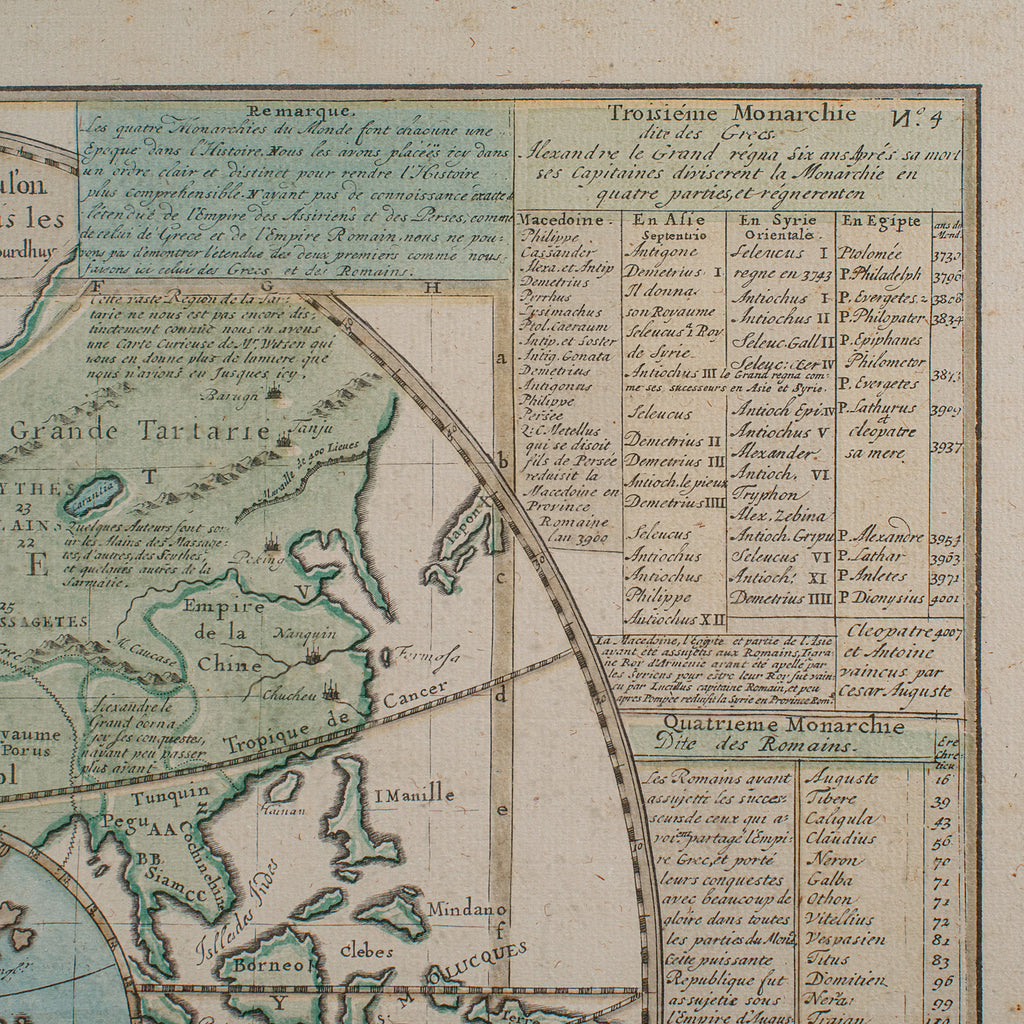 Remarque.
Les quatre Monarchies du Monde font chacune une
Epoque dans l'Histoire. Nous les avons placéés icy dans
un ordre clair et distinct pour rendre l'Histoire
plus comprehensible. N'ayant pas de connoissance exacte d
l'étenduë de l'Empire des Assiriens et des Perses, comme
de celui de Grece et de l'Empire Romain, nous ne pou-
vons pas d'émontrer l'étenduë des deux premiers comme nous
favons ici celui des Grecs et des Romains.
ulon
is les
ourdhuy
Troisiéme Monarchie
N.º 4
dite des Grecs.
Alexandre le Grand régna Six ans Aprés sa mort
ses Capitaines diviserent la Monarchie en
quatre parties, et régnerent en
Macedoine.
Philippe
Cassander
Alexa. et Antip
Demetrius
Perrhus
Lysimachus
Ptol. Caeraum
Antip. et Soster
Antig. Gonata
Demetrius
Antigonus
Philippe
Persée
Q: C. Metellus
qui se disoit
fils de Persée
reduisit la
Macedoine en
Province
Romaine
l'an 3900
En Asie
Septentrio
Antigone
Demetrius I
Il donna
son Royaume
Seleucus 1 Roy
de Syrie
Antiochus III le Grand regna com-
me ses successeurs en Asie et Syrie.
Seleucus
Demetrius II
Demetrius III
Antioch. le pieux
Demetrius IIII
Seleucus
Antiochus
Antiochus
Philippe
Antiochus XII
En Syrie
Orientale
Seleucus I
regne en 3743
Antiochus I
Antiochus II
Seleuc. Gall II
Seleuc: Cer IV
Antioch Epi IV
Antiochus V
Alexander
Antioch. VI
Tryphon
Alex, Zebina
Antioch. Gripu
Seleucus VI
Antioch: XI
Demetrius IIII
En Egipte
Ptolomée
P. Philadelph
P. Evergetes 2
P. Philopater
P. Epiphanes
Philometor
P. Evergetes
P. Lathurus
et
cleopatre
sa mere
P. Alexandre
P. Lathar
P. Anletes
P. Dionysius
Cleopatre 4007
et Antoine
vaincus par
Cesar Auguste
ans du
Mond.
3730
3796
3808
3834
3873
3909
3937
3954
3963
3971
4001
La Macedoine, l'Egipte et partie de l'Asie
avant été assujetés aux Romains, Tigra-
ne Roy d'Arménie avant été apellé par
les Syriens pour estre leur Roy, fut vain-
cu par Lucullus capitaine Romain, et peu
apres Pompée reduisit la Syrie en Province Rom.
Quatrieme Monarchie
Dite des Romains.
Ere
Chrê-
tien
Les Romains avant
assujetti les succes-
seurs de ceux qui a-
voiẽt partagé l'Empi-
re Grec, et porté
leurs conquestes
avec beaucoup de
gloire dans toutes
les parties du Mond.
Cette puissante
Republique fut
assujetie sous
l'Empire d'Augus-
Auguste 16
Tibere 39
Caligula 43
Claudius 56
Neron 70
Galba 71
Othon 71
Vitellius 72
Vespasien 81
Titus 83
Domitien 96
Nerva 99
Trajan
F
G
H
Cette vaste Region de la Tar-
tarie ne nous est pas encore dis-
tinctement connuë nous en avons
une Carte Curieuse de Mr. Witsen qui
nous en donne plus de lumiere que
nous n'avions eu Jusques icy.
a
b
c
d
e
f
Barugh
Grande Tartarie
Tanju
Muraille de 400 Lieues
T
YTHES
23
LAINS
22
E
Quelques Auteurs font sor-
tir les Alains des Massage-
tes, d'autres, des Scythes,
et quelques autres de la
Sarmatie.
Peking
Japon
V
25
SSAGETES
Empire
de la
Chine
Nanquin
M. Caucase
Chucheu
Formosa
Alexandre le
Grand borna
jcy ses conquestes,
n'ayant peu passer
plus avant
yaume
Porus
ol
Tropique de Cancer
Tunquin
Hainan
Pegu
AA
Cochinchin
BB
Siam
CC
I Manille
Isles des Indes
Mindano
Borneo
Clebes
MOLUCQUES
Y
Terre